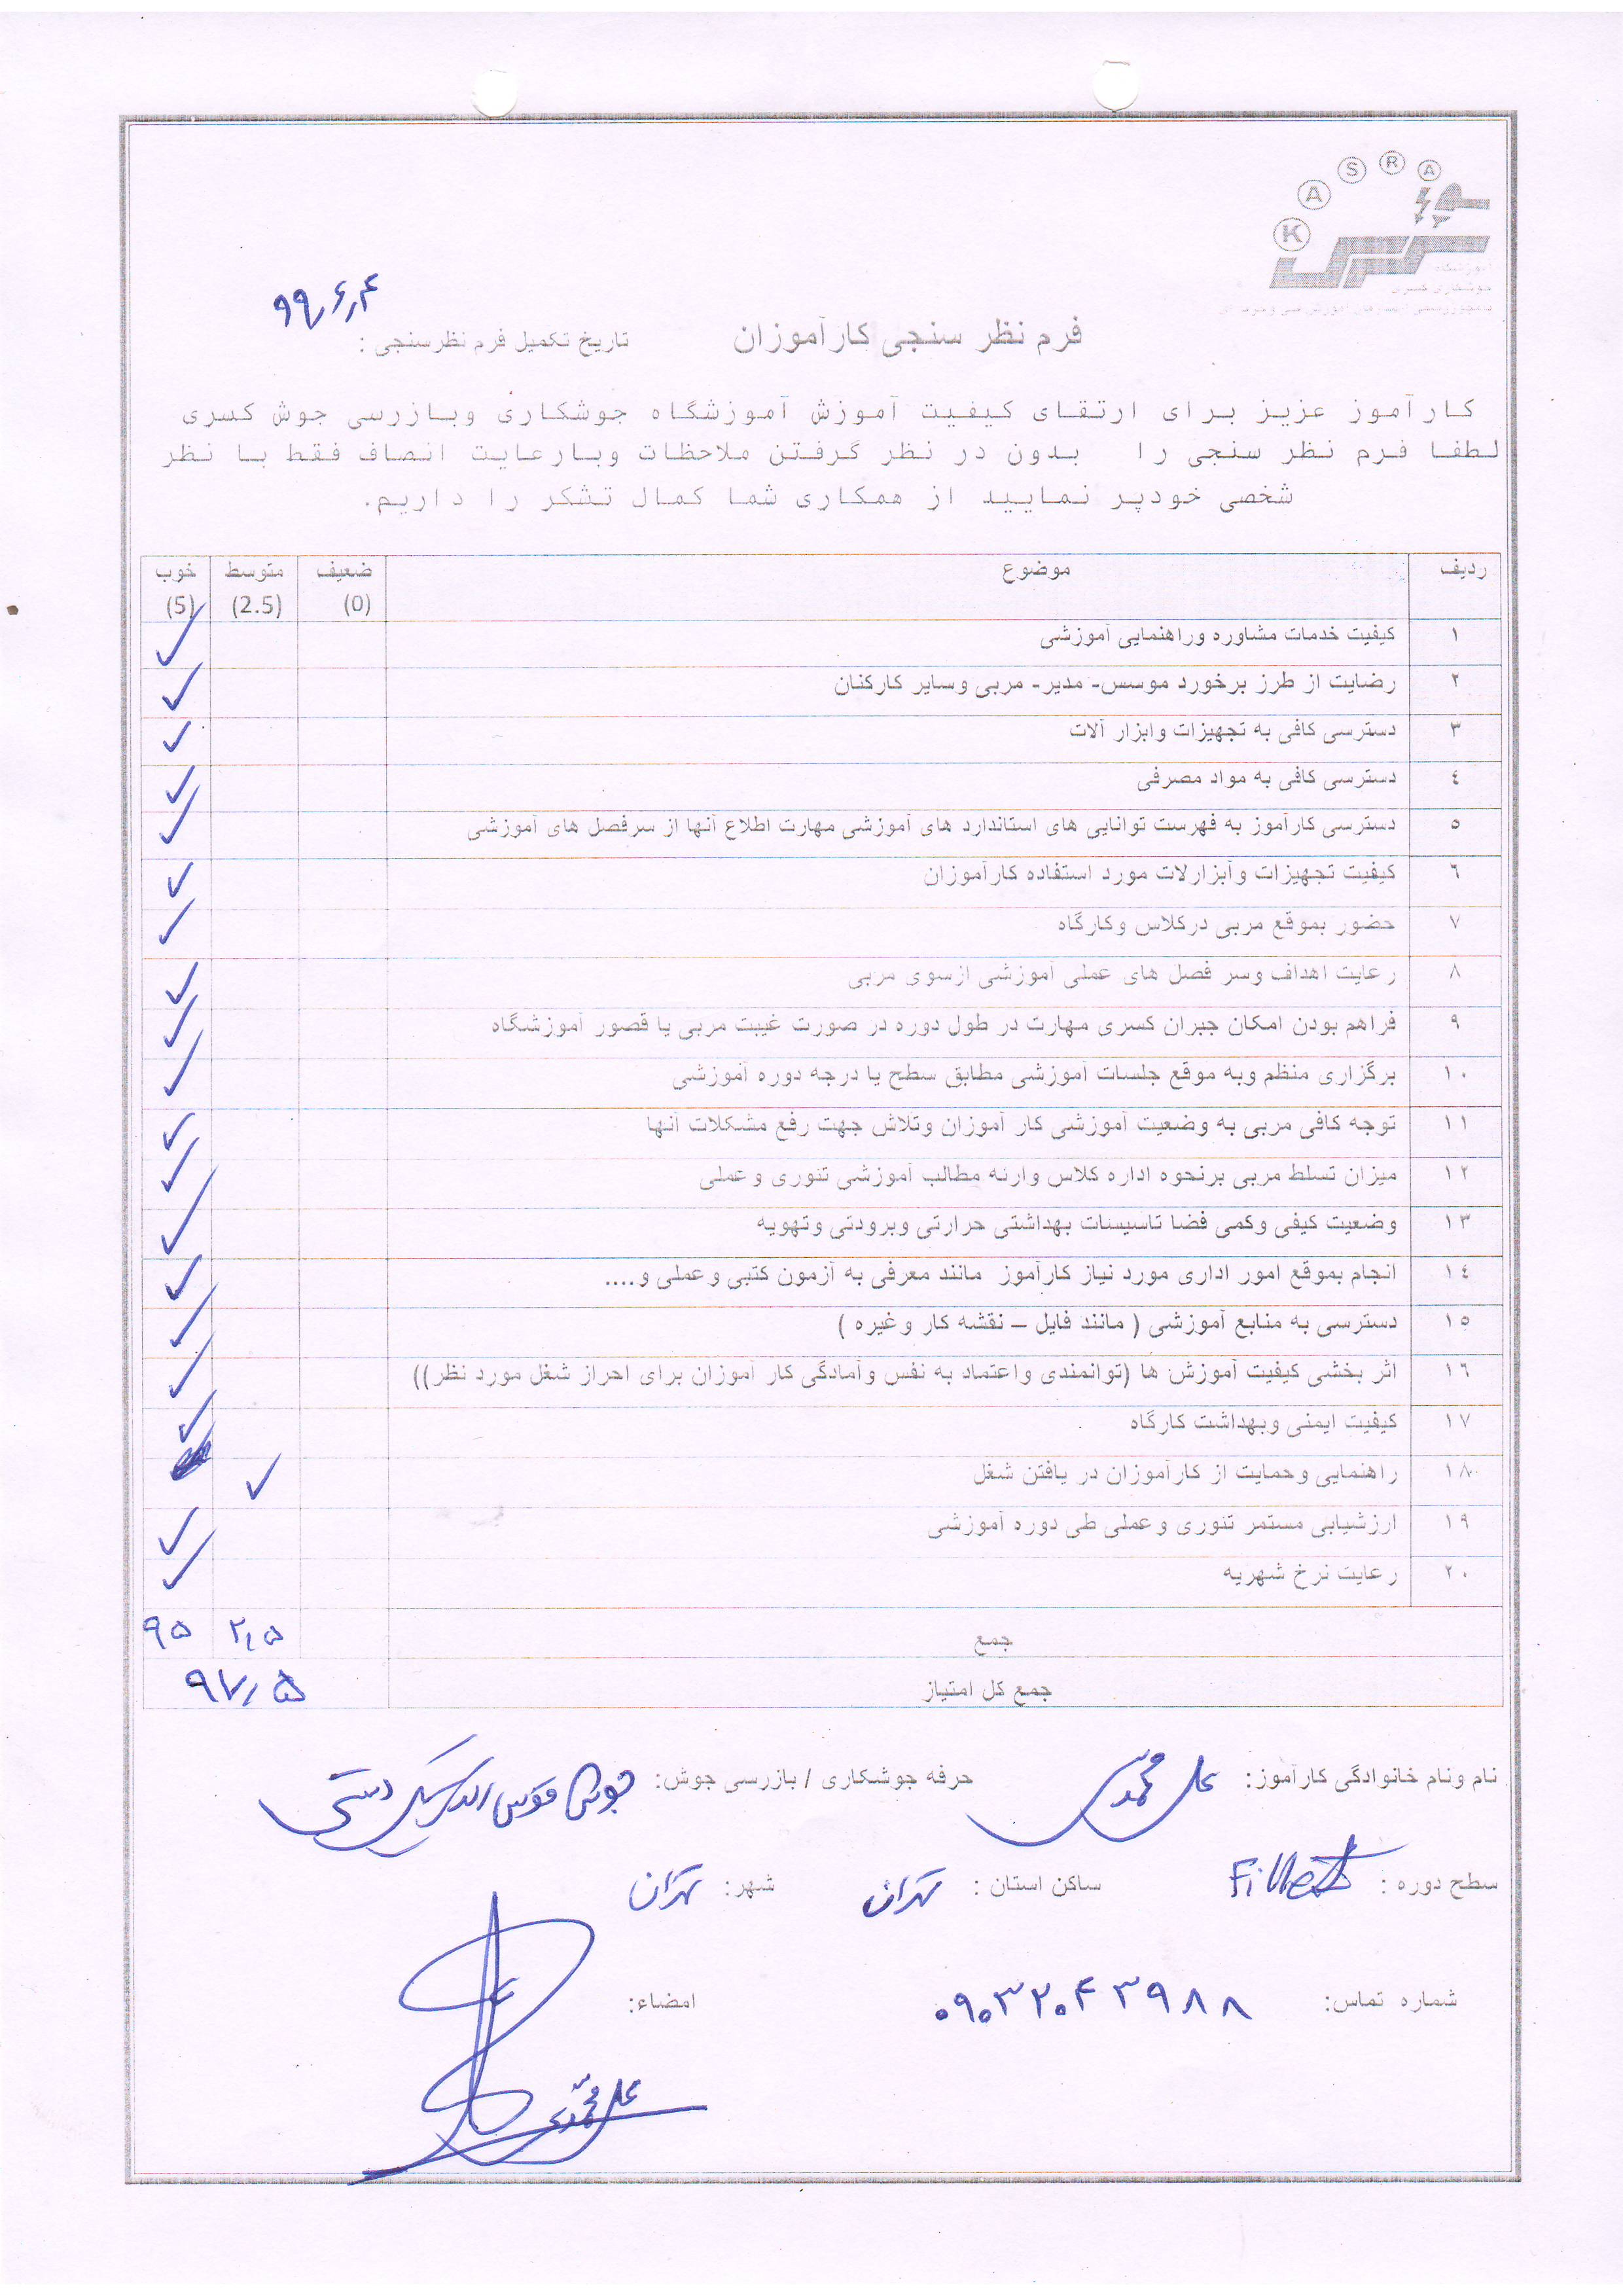 K A S R A
جوش
کسری
آموزشگاه
جوشکاری کسری
فرم نظر سنجی کارآموزان
تاریخ تکمیل فرم نظرسنجی : ۹۹,۶,۴
کارآموز عزیز برای ارتقای کیفیت آموزش آموزشگاه جوشکاری وبازرسی جوش کسری
لطفا فرم نظر سنجی را بدون در نظر گرفتن ملاحظات وبارعایت انصاف فقط با نظر
شخصی خودپر نمایید از همکاری شما کمال تشکر را داریم.
ردیف موضوع ضعیف (0) متوسط (2.5) خوب (5)
۱ کیفیت خدمات مشاوره وراهنمایی آموزشی ✓
۲ رضایت از طرز برخورد موسس- مدیر- مربی وسایر کارکنان ✓
۳ دسترسی کافی به تجهیزات وابزار آلات ✓
٤ دسترسی کافی به مواد مصرفی ✓
٥ دسترسی کارآموز به فهرست توانایی های استاندارد های آموزشی مهارت اطلاع آنها از سرفصل های آموزشی ✓
٦ کیفیت تجهیزات وآبزارلات مورد استفاده کارآموزان ✓
۷ حضور بموقع مربی درکلاس وکارگاه ✓
۸ رعایت اهداف وسر فصل های عملی آموزشی ازسوی مربی ✓
۹ فراهم بودن امکان جبران کسری مهارت در طول دوره در صورت غیبت مربی یا قصور آموزشگاه ✓
۱۰ برگزاری منظم وبه موقع جلسات آموزشی مطابق سطح یا درجه دوره آموزشی ✓
۱۱ توجه کافی مربی به وضعیت آموزشی کار آموزان وتلاش جهت رفع مشکلات آنها ✓
۱۲ میزان تسلط مربی برنحوه اداره کلاس وارئه مطالب آموزشی تئوری وعملی ✓
۱۳ وضعیت کیفی وکمی فضا تاسیسات بهداشتی حرارتی وبرودتی وتهویه ✓
۱٤ انجام بموقع امور اداری مورد نیاز کارآموز مانند معرفی به آزمون کتبی وعملی و.... ✓
۱٥ دسترسی به منابع آموزشی ( مانند فایل – نقشه کار وغیره ) ✓
۱٦ اثر بخشی کیفیت آموزش ها (توانمندی واعتماد به نفس وآمادگی کار آموزان برای احراز شغل مورد نظر)) ✓
۱۷ کیفیت ایمنی وبهداشت کارگاه ✓
۱۸ راهنمایی وحمایت از کارآموزان در یافتن شغل ✓
۱۹ ارزشیابی مستمر تئوری وعملی طی دوره آموزشی ✓
۲۰ رعایت نرخ شهریه ✓
جمع ۲,۵ ۹۵
جمع کل امتیاز ۹۷,۵
نام ونام خانوادگی کارآموز: علی محمدی حرفه جوشکاری / بازرسی جوش: جوش قوس الکتریکی دستی
سطح دوره : Fillet ساکن استان : تهران شهر: تهران
شماره تماس: ۰۹۰۳۲۰۴۳۹۸۸ امضاء:
علی محمدی